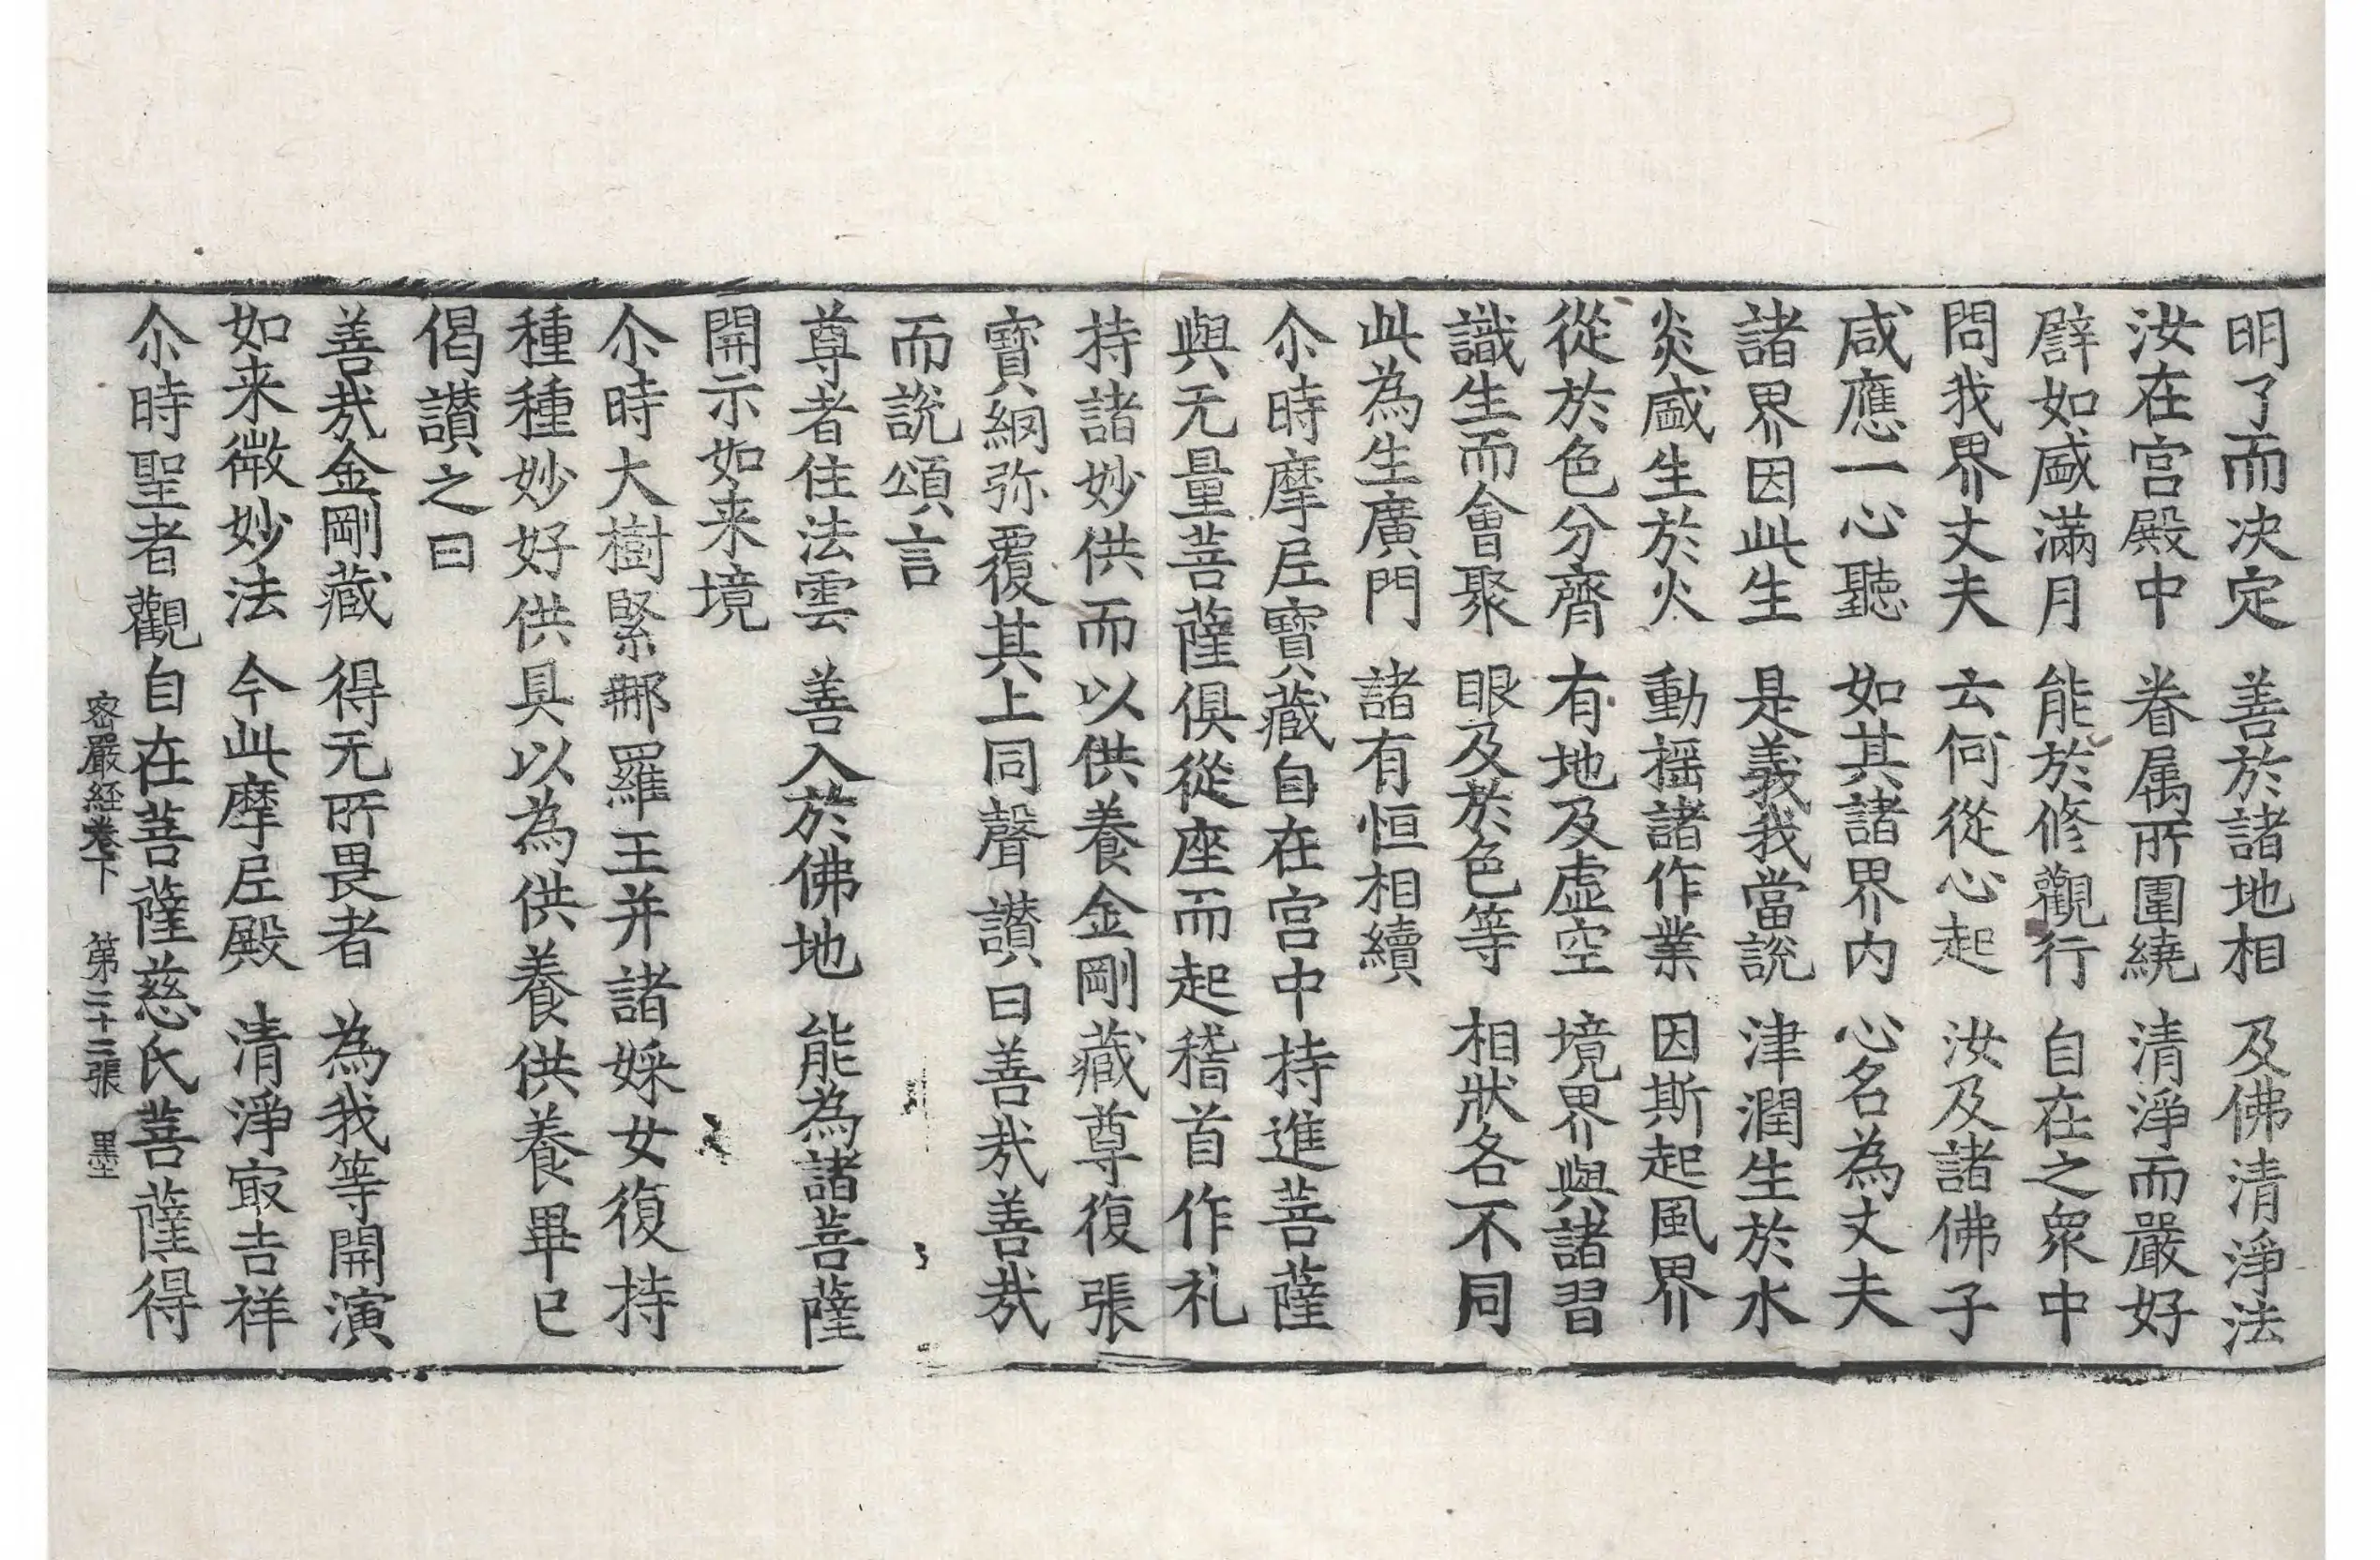 明了而決定　善於諸地相　及佛清淨法
汝在宫殿中　眷属所圍繞　清淨而嚴好
譬如盛滿月　能於修觀行　自在之衆中
問我界丈夫　云何從心起　汝及諸佛子
咸應一心聽　如其諸界内　心名為丈夫
諸界因此生　是義我當說　津潤生於水
炎盛生於火　動摇諸作業　因斯起風界
從於色分齊　有地及虚空　境界與諸習
識生而會聚　眼及於色等　相狀各不同
此為生廣門　諸有恒相續
尒時摩尼寶藏自在宫中持進菩薩
與无量菩薩俱從座而起稽首作礼
持諸妙供而以供養金剛藏尊復張
寶網弥覆其上同聲讃曰善㢤善㢤
而說頌言
尊者住法雲　善入於佛地　能為諸菩薩
開示如来境
尒時大樹緊那羅王并諸婇女復持
種種妙好供具以為供養供養畢已
偈讃之曰
善㢤金剛藏　得无所畏者　為我等開演
如来微妙法　今此摩尼殿　清淨㝡吉祥
尒時聖者觀自在菩薩慈氏菩薩得
密嚴經卷下　第二十三張　墨